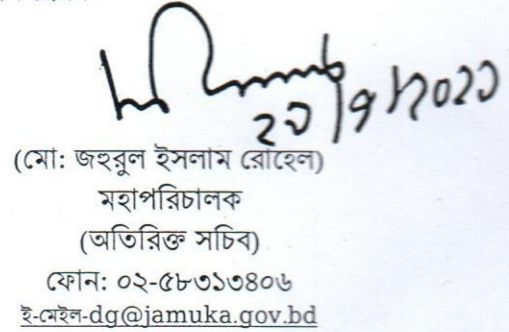 ২১/৭/২০২১
(মো: জহুরুল ইসলাম রোহেল)
মহাপরিচালক
(অতিরিক্ত সচিব)
ফোন: ০২-৫৮৩১৩৪০৬
ই-মেইল-dg@jamuka.gov.bd